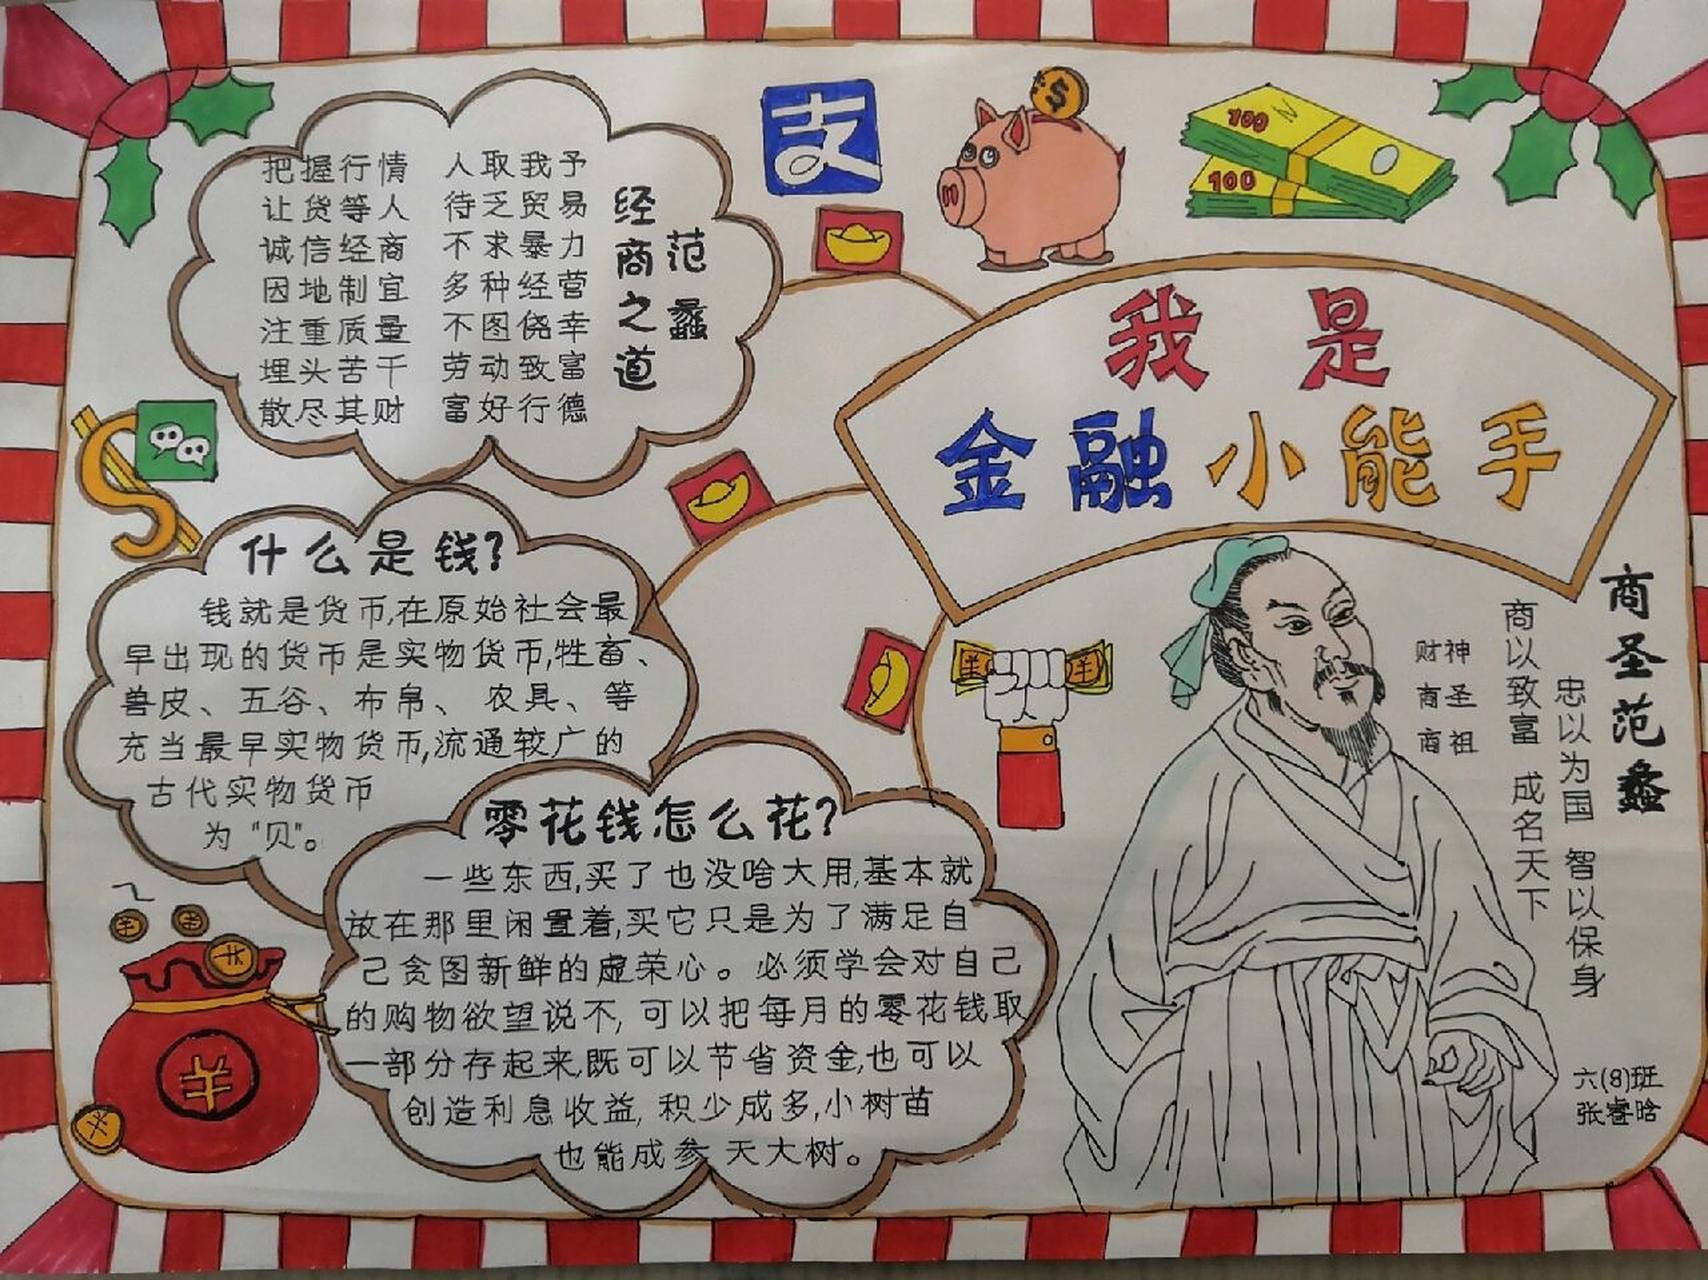 我是
金融小能手
范蠡
经商之道
把握行情 人取我予
让货等人 待乏贸易
诚信经商 不求暴力
因地制宜 多种经营
注重质量 不图侥幸
埋头苦干 劳动致富
散尽其财 富好行德
支
$
100
100
什么是钱?
钱就是货币,在原始社会最
早出现的货币是实物货币,牲畜、
兽皮、五谷、布帛、农具、等
充当最早实物货币,流通较广的
古代实物货币
为"贝"。
零花钱怎么花?
一些东西,买了也没啥大用,基本就
放在那里闲置着,买它只是为了满足自
己贪图新鲜的虚荣心。必须学会对自己
的购物欲望说不,可以把每月的零花钱取
一部分存起来,既可以节省资金,也可以
创造利息收益,积少成多,小树苗
也能成参天大树。
商圣范蠡
忠以为国 智以保身
商以致富 成名天下
财神
商圣
商祖
六(8)班
张睿晗